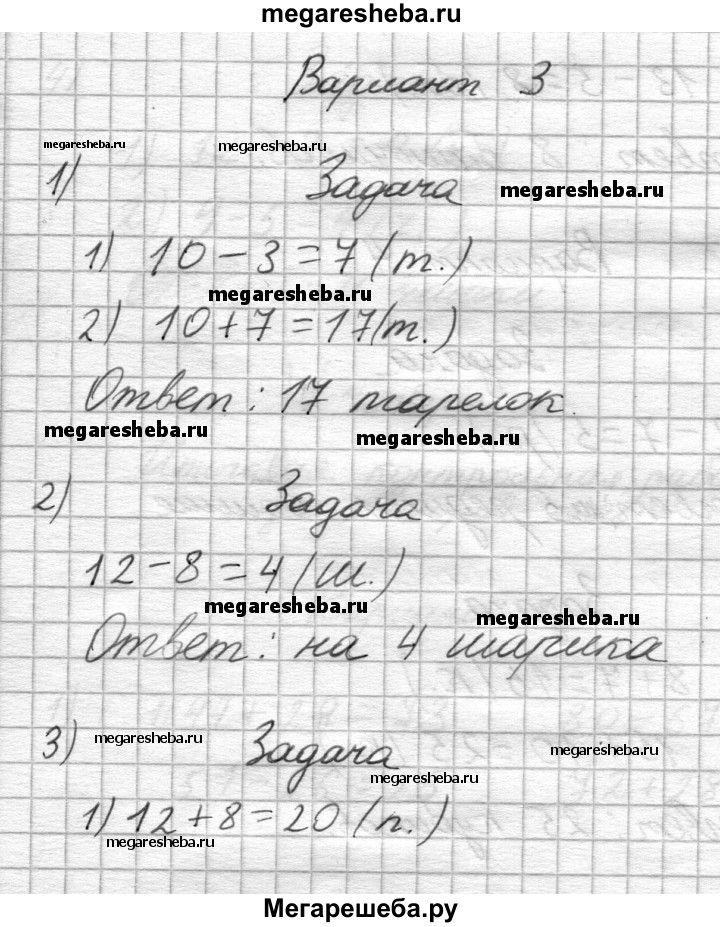 megaresheba.ru
Вариант 3
megaresheba.ru megaresheba.ru
1) Задача megaresheba.ru
1) 10 - 3 = 7 (т.)
megaresheba.ru
2) 10 + 7 = 17 (т.)
Ответ: 17 тарелок.
megaresheba.ru megaresheba.ru
2) Задача
12 - 8 = 4 (ш.)
megaresheba.ru megaresheba.ru
Ответ: на 4 шарика
3) megaresheba.ru Задача megaresheba.ru
megaresheba.ru
1) 12 + 8 = 20 (п.)
megaresheba.ru
Мегарешеба.ру